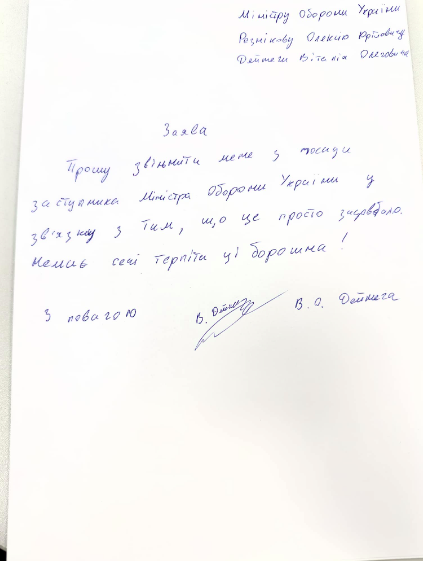 Міністру Оборони України
Резнікову Олексію Юрійовичу
Дейнеги Віталія Олеговича
Заява
Прошу звільнити мене з посади
заступника Міністра Оборони України у
зв'язку з тим, що це просто заєрвбало.
Немає сил терпіти ці борошна!
З повагою В. Дейнега В. О. Дейнега